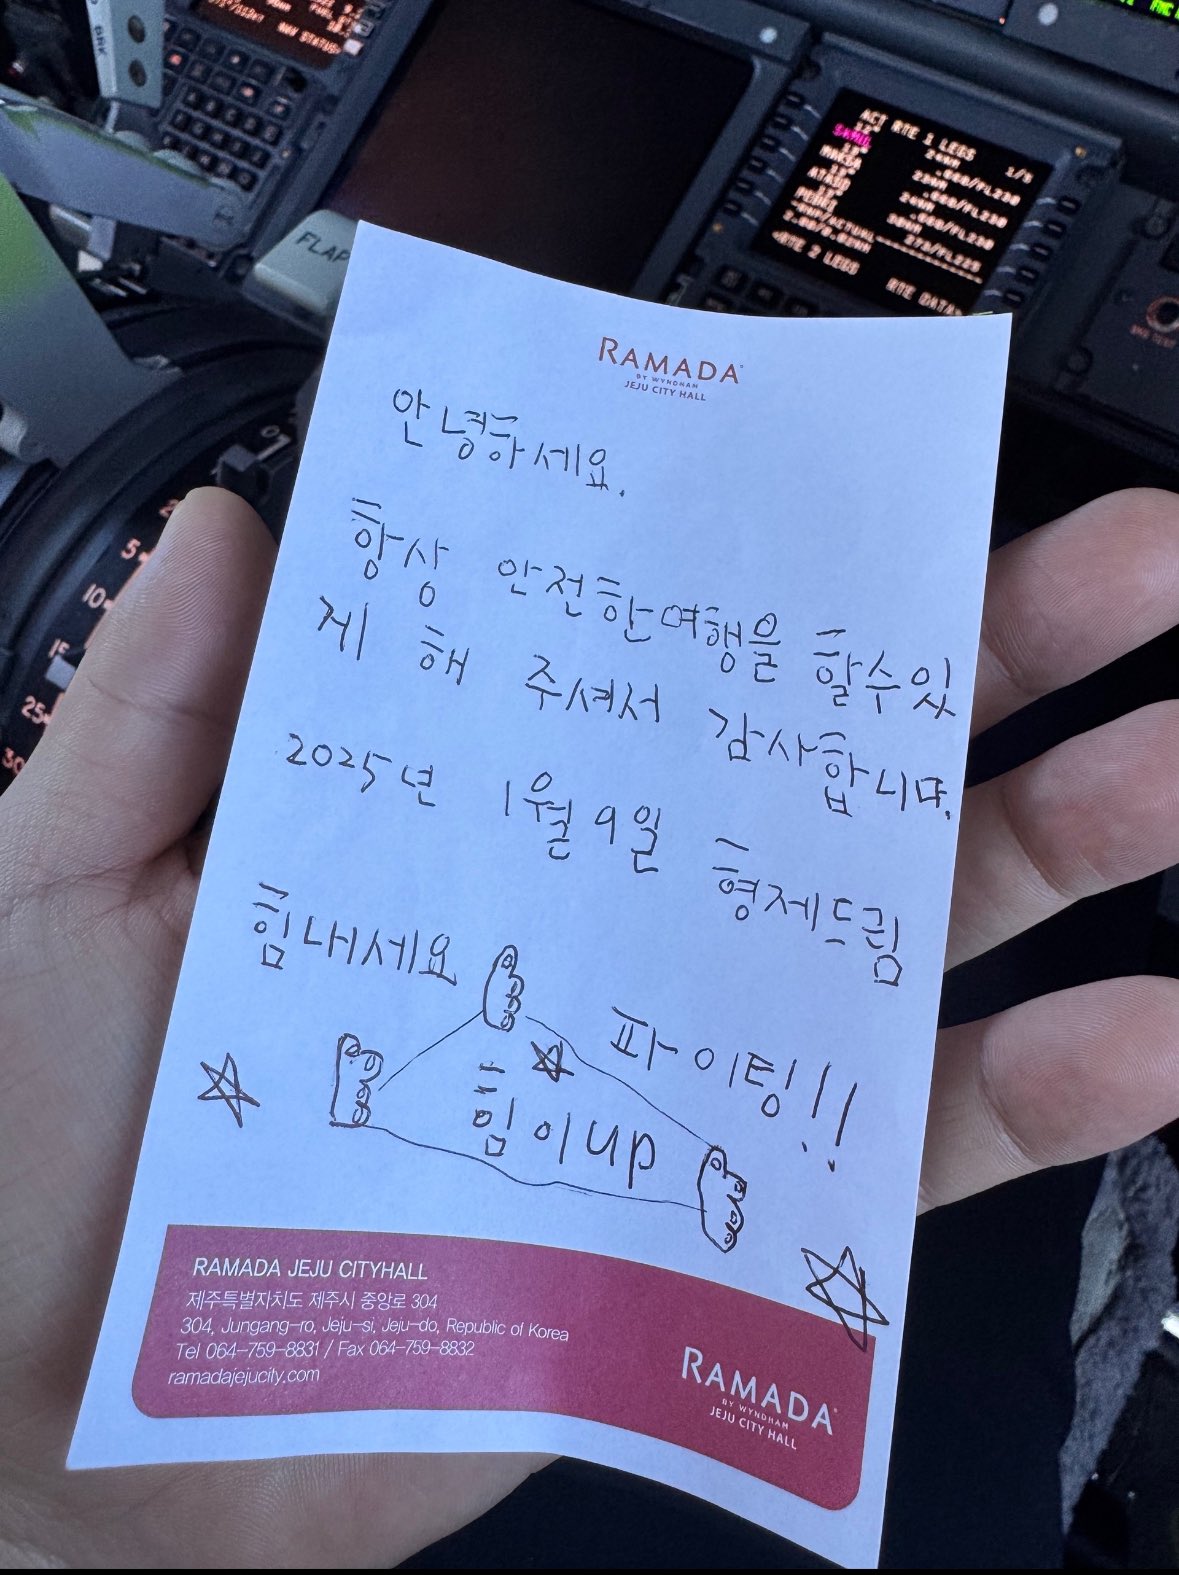 NAV STATUS
BRK
FLAP
ACT RTE 1 LEGS 1/5
<RTE 2 LEGS
RTE DATA>
5
10
15
25
30
RAMADA
BY WYNDHAM
JEJU CITY HALL
안녕하세요.
항상 안전한여행을 할수있
게 해 주셔서 감사합니다.
2025년 1월 9일 형제드림
힘내세요
파이팅!!
힘이up
RAMADA JEJU CITYHALL
제주특별자치도 제주시 중앙로 304
304, Jungang-ro, Jeju-si, Jeju-do, Republic of Korea
Tel 064-759-8831 / Fax 064-759-8832
ramadajejucity.com
RAMADA
BY WYNDHAM
JEJU CITY HALL